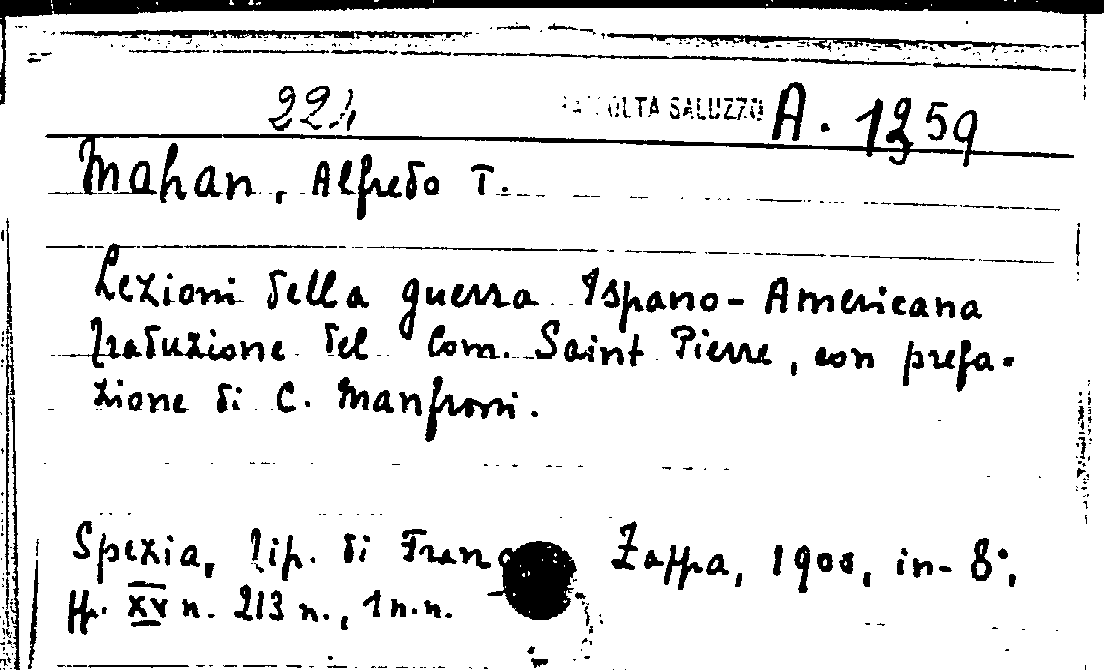 224 RACCOLTA SALUZZO A. 1359
Mahan, Alfredo T.
Lezioni della guerra Ispano-Americana
traduzione del Com. Saint Pierre, con prefa-
zione di C. Manfroni.
Spezia, tip. di Franc Zappa, 1900, in-8°,
pp. XV n. 213 n., 1 n.n.